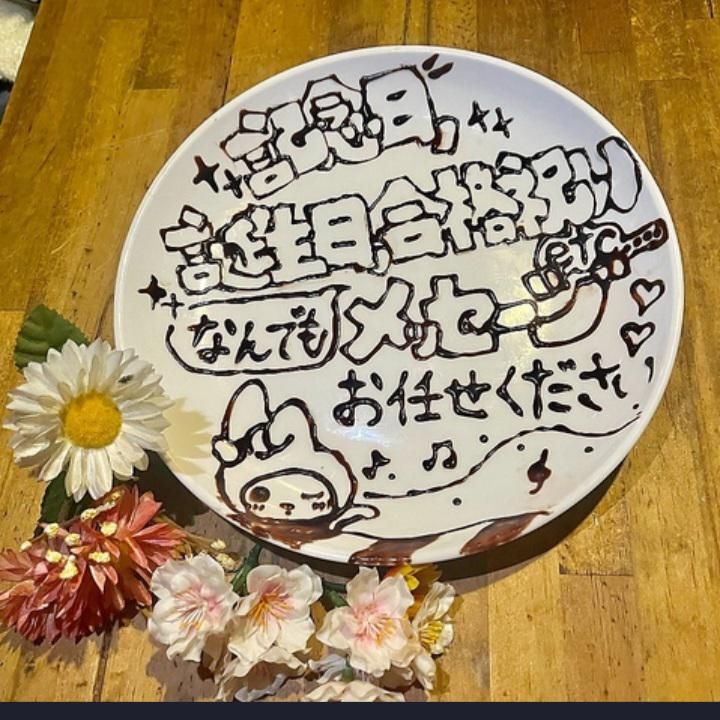 記念日,
誕生日,合格祝い
etc
なんでもメッセージ
お任せください